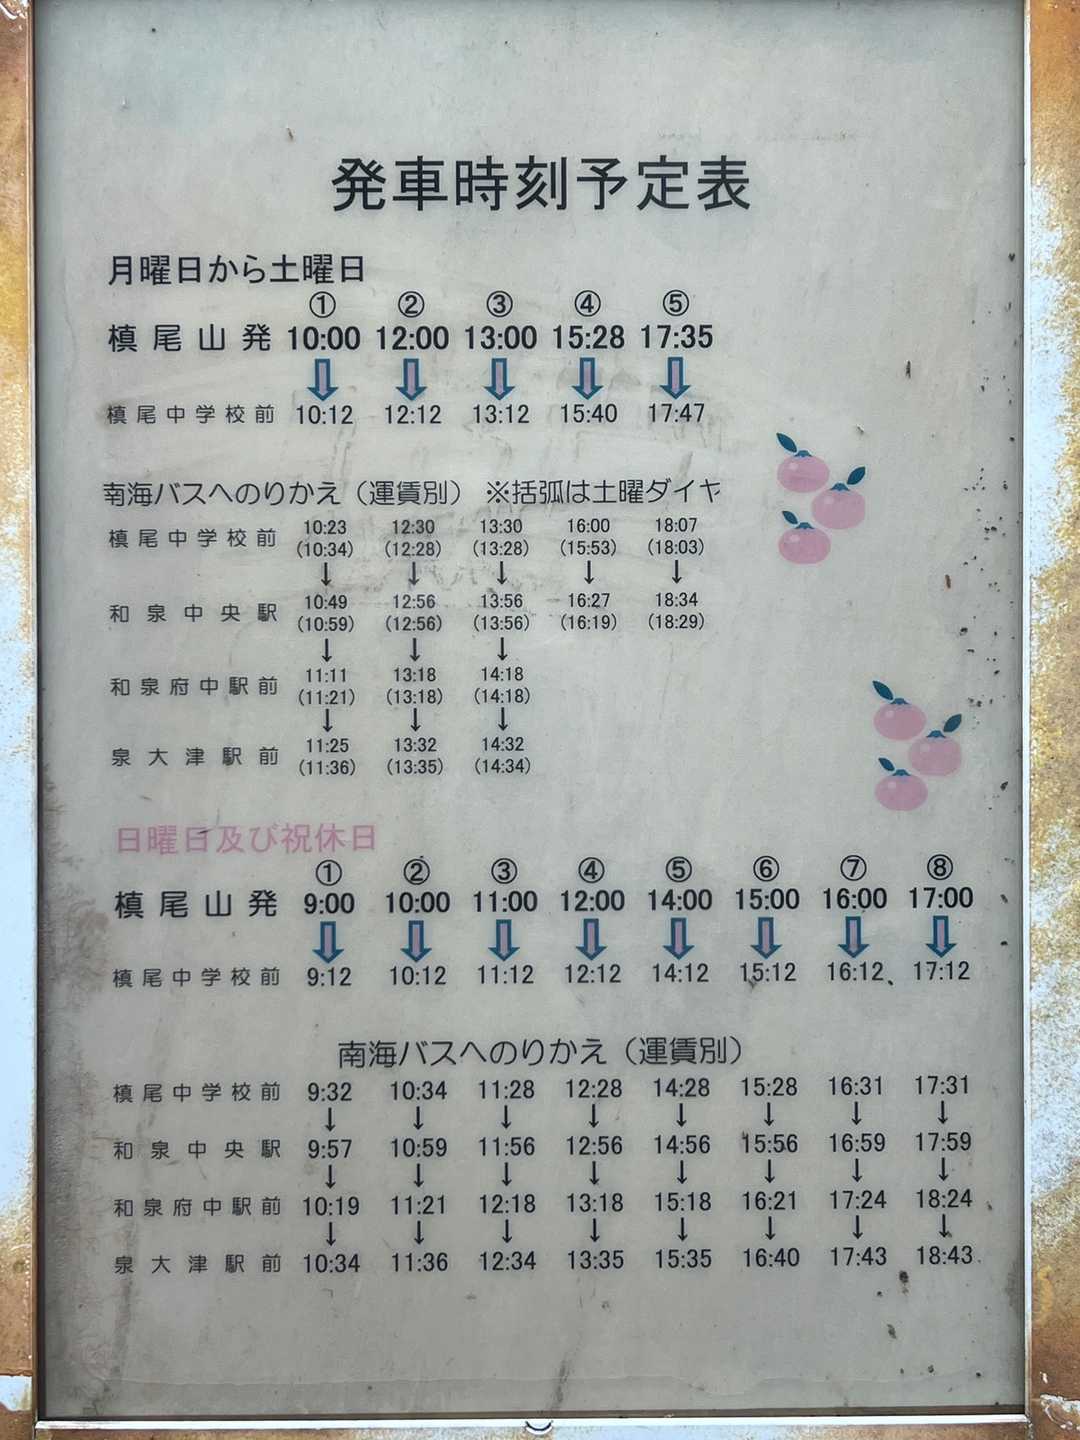 発車時刻予定表
月曜日から土曜日
① ② ③ ④ ⑤
槙尾山発 10:00 12:00 13:00 15:28 17:35
槙尾中学校前 10:12 12:12 13:12 15:40 17:47
南海バスへのりかえ（運賃別） ※括弧は土曜ダイヤ
槙尾中学校前 10:23 12:30 13:30 16:00 18:07
(10:34) (12:28) (13:28) (15:53) (18:03)
↓ ↓ ↓ ↓ ↓
和泉中央駅 10:49 12:56 13:56 16:27 18:34
(10:59) (12:56) (13:56) (16:19) (18:29)
↓ ↓ ↓
和泉府中駅前 11:11 13:18 14:18
(11:21) (13:18) (14:18)
↓ ↓ ↓
泉大津駅前 11:25 13:32 14:32
(11:36) (13:35) (14:34)
日曜日及び祝休日
① ② ③ ④ ⑤ ⑥ ⑦ ⑧
槙尾山発 9:00 10:00 11:00 12:00 14:00 15:00 16:00 17:00
槙尾中学校前 9:12 10:12 11:12 12:12 14:12 15:12 16:12 17:12
南海バスへのりかえ（運賃別）
槙尾中学校前 9:32 10:34 11:28 12:28 14:28 15:28 16:31 17:31
↓ ↓ ↓ ↓ ↓ ↓ ↓ ↓
和泉中央駅 9:57 10:59 11:56 12:56 14:56 15:56 16:59 17:59
↓ ↓ ↓ ↓ ↓ ↓ ↓ ↓
和泉府中駅前 10:19 11:21 12:18 13:18 15:18 16:21 17:24 18:24
↓ ↓ ↓ ↓ ↓ ↓ ↓ ↓
泉大津駅前 10:34 11:36 12:34 13:35 15:35 16:40 17:43 18:43